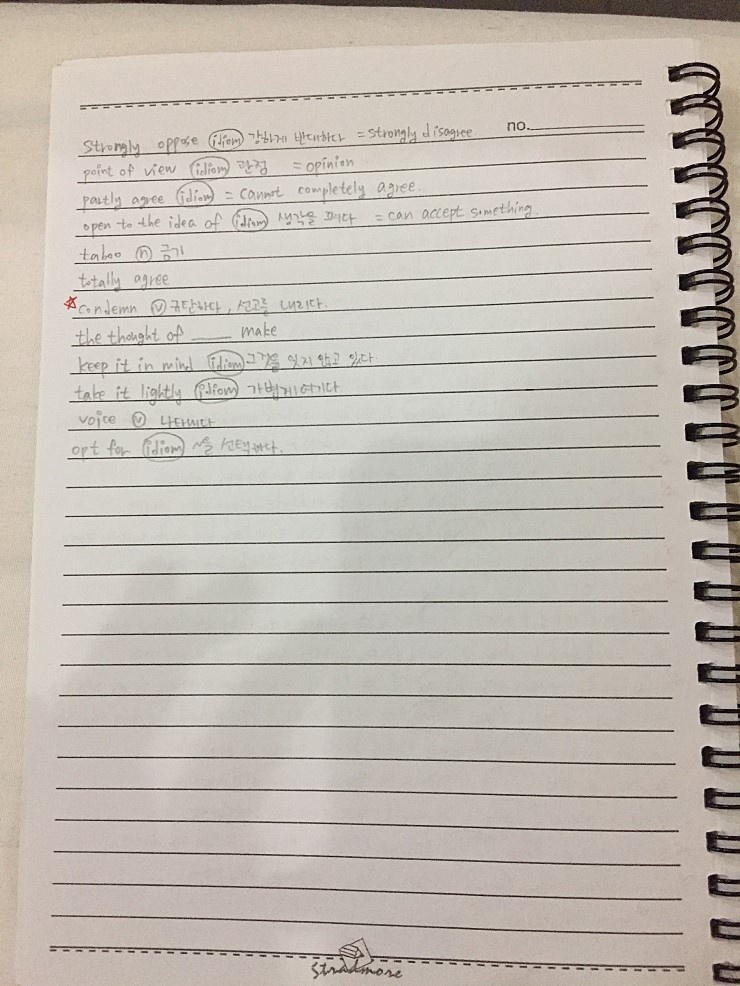 no.
Strongly oppose (idiom) 강하게 반대하다 = Strongly disagree
point of view (idiom) 관점 = opinion
partly agree (idiom) = Cannot completely agree.
open to the idea of (idiom) 생각을 펴다 = can accept something.
taboo (n) 금기
totally agree
☆condemn (v) 규탄하다, 선고를 내리다.
the thought of ____ make
keep it in mind (idiom) 그것을 잊지 않고 있다.
take it lightly (idiom) 가볍게 여기다
voice (v) 나타내다
opt for (idiom) ~을 선택하다.
Stradmore